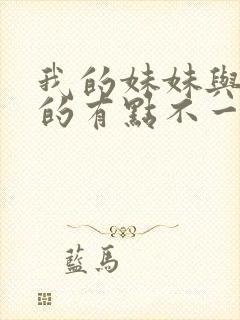 我的妹妹與
的有點不一
藍馬